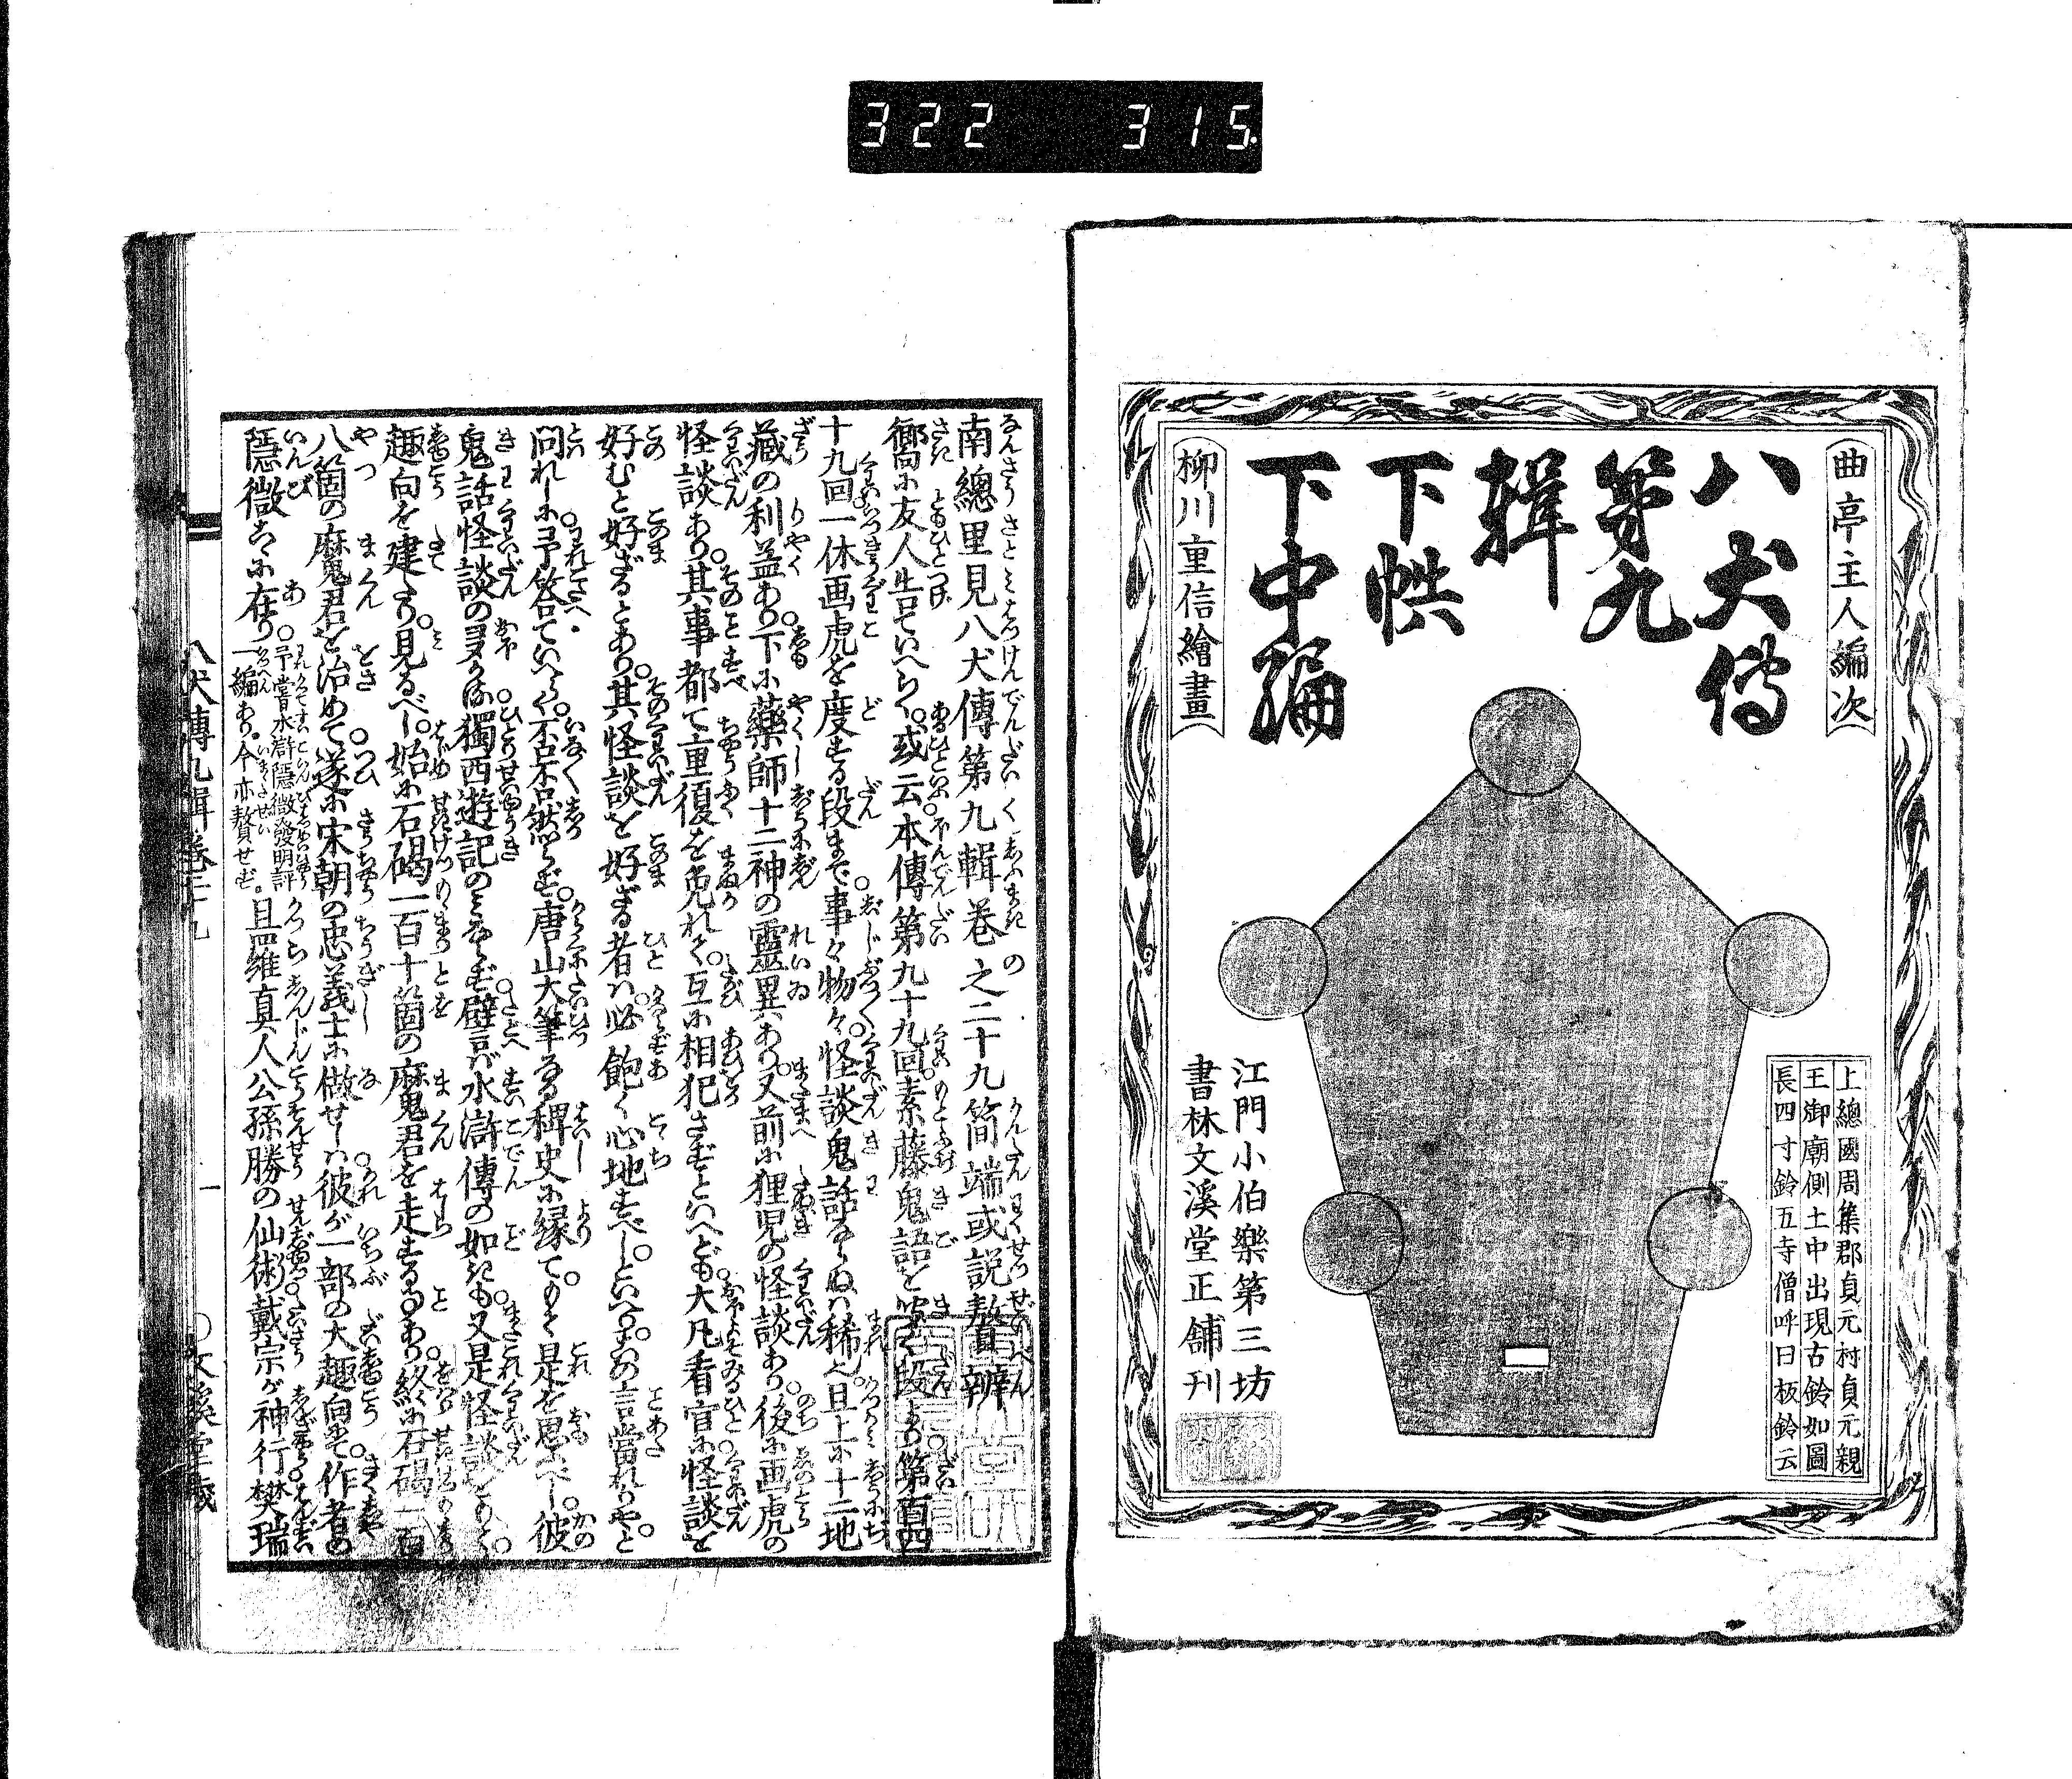 322 315
曲亭主人編次
八犬傳
第九
輯
下帙
下中編
柳川重信繪畫
上總國周集郡貞元村貞元親
王御廟側土中出現古鈴如圖
長四寸鈴五寺僧呼曰板鈴云
江門小伯樂第三坊
書林文溪堂正舖刊
南總里見八犬傳第九輯卷之二十九簡端或説贅辨
嚮に友人告ていへらく或云本傳第九十九回素藤鬼語を
段より第百四
十九回一休画虎を度する段まで事々物々怪談鬼話ならぬハ稀也且上に十二地
藏の利益あり下に藥師十二神の靈異あり又前に狸児の怪談あり後に画虎の
怪談あり其事都て重復を免れず互に相犯さずといへども大凡看官に怪談を
好むと好ざるとあり其怪談を好ざる者ハ必飽く心地すべしといへりこの言當れりやと
問れしに予答ていへらく否不然らず唐山大筆なる稗史に縁てもて是を思ふべし彼
鬼話怪談の多かるは獨西遊記のみならず譬ば水滸傳の如きも又是怪談をもて
趣向を建たり見るべし始に石碣一百十箇の魔君を走する事あり終に石碣一百
八箇の魔君を治めて遂に宋朝の忠義士に做せしハ彼が一部の大趣向にて作者の
隱微こゝに在り
予嘗水滸隱微發明評
一編あり今亦贅せず
且羅真人公孫勝の仙術戴宗が神行樊瑞
八犬傳九輯卷二十九
一
○文溪堂藏